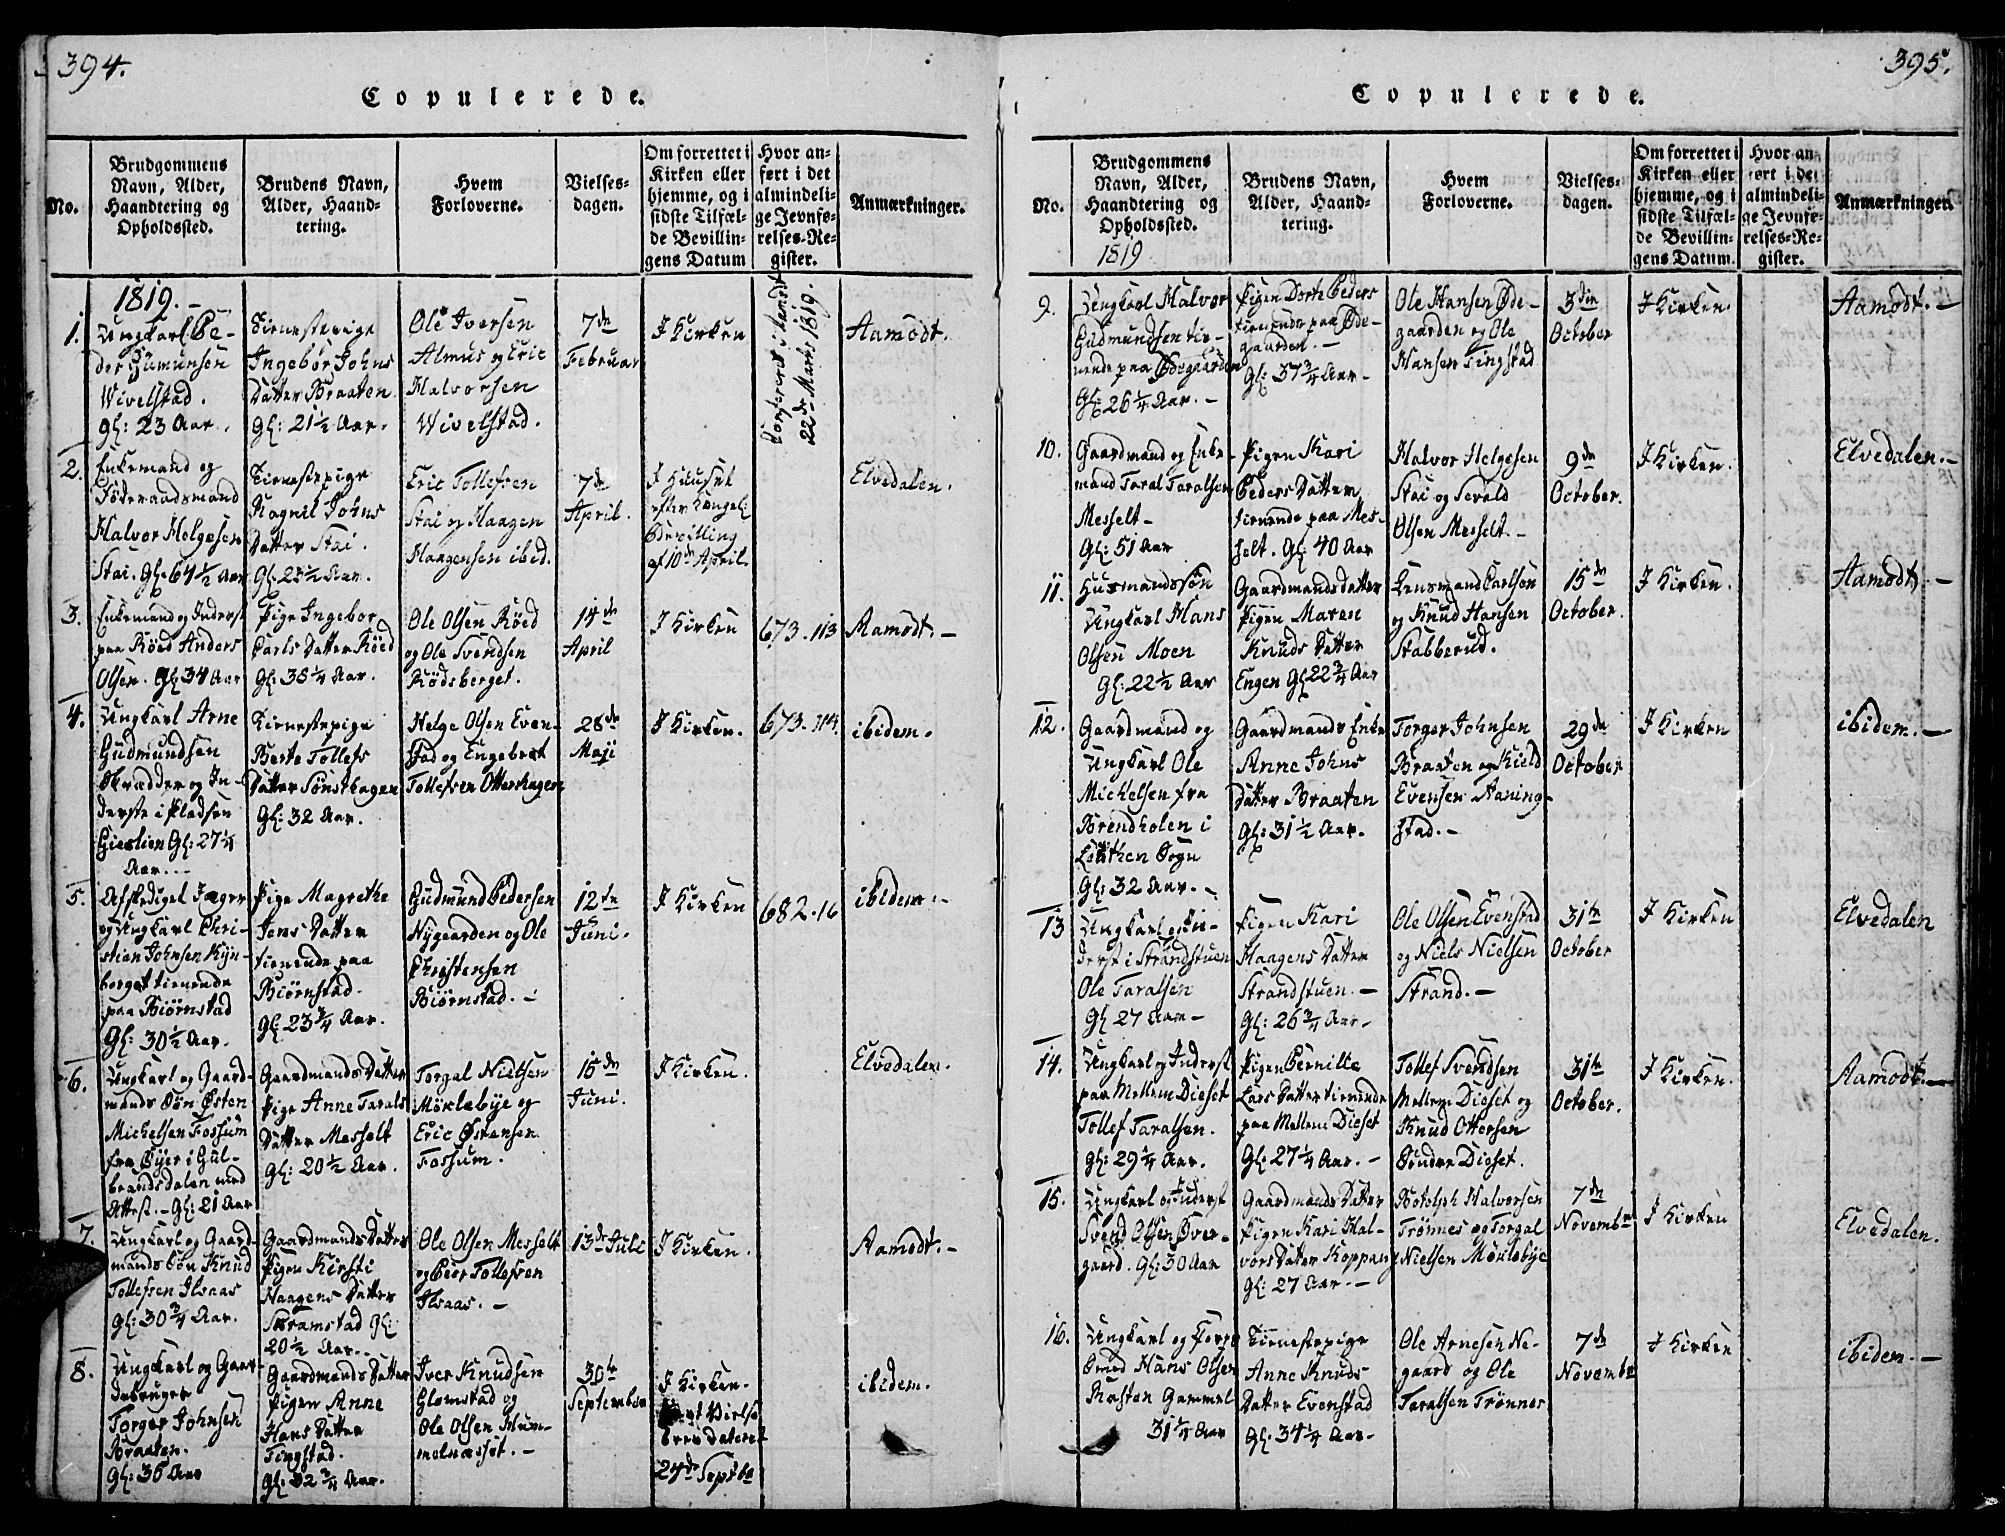 394.
Copulerede.
No.
Brudgommens
Navn, Alder,
Haandtering og
Opholdssted.
Brudens Navn,
Alder, Haand-
tering.
Hvem
Forloverne.
Vielses-
dagen.
Om forrettet i
Kirken eller
hjemme, og i
sidste Tilfæl-
de Bevillin-
gens Datum
Hvor an-
ført i det
almindeli-
ge Jevnfø-
relses-Re-
gister.
Anmærkninger.
1819.-
1.
Ungkarl Pe-
der Gumunsen
Wivelstad.
gl: 23 Aar.
Tienestepige
Ingebor Johns
Datter Braaten
Gl: 21½ Aar.
Ole Iversen
Almus og Eric
Halvorsen
Wivelstad.
7de
Februar
I Kirken
22de Marts 1819.
Aamodt.
2.
Enkemand og
Föderaadsmand
Halvor Helgesen
Stai. Gl: 64½ Aar
Tienestepige
Ragnil Johns
Datter Stai.
Eric Tollefsen
Stai og Haagen
Haagensen ibid.
7de
April.
I Huuset
efter Kongel:
Bevilling
af 10de April.
Elvedalen.
3.
Enkemand og Inderst
paa Röed Anders
Olsen. Gl 34 Aar
Pige Ingebor
Carls Datter Röed
Gl: 38¼ Aar.
Ole Olsen Röed
og Ole Svendsen
Rödsberget.
14de
April
I Kirken
673.113
Aamodt.-
4.
Ungkarl Arne
Gudmundsen
Skrædder og In-
derste i Pladsen
Gl: 27¼
Aar.--
Tienestepige
Berte Tollefs
Datter Sönsthagen
Gl: 32 Aar.
Helge Olsen Even-
stad og Engebret
Tollefsen Otterhagen
28de
Maji
I Kirken.
673.114.
ibidem.
5.
Afskediget Jæger
og Ungkarl Chri-
stian Johnsen Kyn-
berget tienende
paa Biörnstad
Gl: 30½ Aar.
Pige Magrethe
Jens Datter
tienende paa
Biörnstad.
Gl: 23¾ Aar.
Gudmund Pedersen
Nygaarden og Ole
Christensen
Biörnstad.-
12te
Juni.
I Kirken
682.16
ibidem.-
6.
Ungkarl og Gaard-
mands Sön Östen
Michelsen Fossum
fra Öyer i Gul-
brandsdalen med
Attest.- Gl: 21 Aar
Gaardmands Datter
Pige Anne Tarals
Datter Messelt
gl: 20½ Aar.
Torgal Nielsen
Möklebye og
Eric Östensen
Fossum.
15de
Juni.
I Kirken.
Elvedalen.
7.
Ungkarl og Gaard-
mands Sön Knud
Tollefsen Ilsaas
gl: 30¾ Aar.
Gaardmands Datter
Pigen Kirsti
Haagens Datter
gl:
20½ Aar.
Ole Olsen Messelt
og Peer Tollefsen
Ilsaas.-
13de Juli
I Kirken.
Aamodt.-
8.
Ungkarl og Gaar-
dbruger
Torger Johnsen
Braaten.
Gl: 36 Aar
Gaardmands Datter
Pigen Anne
Hans Datter
Tingstad.
gl: 32¾ Aar.
Iver Knudsen
Glomstad og
Ole Olsen Hum-
melnæsset.-
30te
September
I Kirken.
Vielse
brev dateret
24de Septbr
ibidem.
395.
Copulerede.
No.
Brudgommens
Navn, Alder,
Haandtering og
Opholdssted.
1819
Brudens Navn,
Alder, Haand-
tering.
Hvem
Forloverne.
Vielses-
dagen.
Om forrettet i
Kirken eller
hjemme, og i
sidste Tilfæl-
de Bevillin-
gens Datum.
Hvor an-
ført i det
almindeli-
ge Jevnfø-
relses-Re-
gister.
Anmærkninger.
9.
Ungkarl Halvor
Gudmundsen tie-
nende paa Ödegaarden
Gl: 26¼ Aar.-
Pigen Dorte Peders
tienende paa Öde-
gaarden.-
Gl: 37¾ Aar-
Ole Hansen Öde-
gaarden og Ole
Hansen Tingstad
3die
October
I Kirken.
Aamodt.-
10.
Gaardmand og Enke-
mand Taral Taralsen
Messelt-
Gl: 51 Aar
Pigen Kari
Peders Datter
tienende paa Mes-
selt. Gl: 40 Aar
Halvor Helgesen
Stai og Sevald
Olsen Messelt.-
9de
October.
I Kirken.
Elvedalen.-
11.
Husmandssön
Ungkarl Hans
Olsen Moen
Gl: 22½ Aar
Gaardmands Datter
Pigen Maren
Knuds Datter
Engen Gl 22¾ Aar
Lensmand Carlson
og Knud Hansen
Stabberud.
15de
October.
I Kirken.
Aamodt.-
12.
Gaardmand og
Ungkarl Ole
Michelsen fra
Brendholen i
Löuthen Sogn
Gl: 32 Aar.-
Gaardmands Enke
Anne Johns
Datter Braaten
Gl: 31½ Aar.
Torger Johnsen
Braaten og Kield
Evensen Aaning-
stad.-
29de
October
I Kirken
ibidem.-
13
Ungkarl og In-
derst i Strandstuen
Ole Taralsen
Gl 27 Aar-
Pigen Kari
Haagens Datter
Strandstuen.-
Gl: 26¾ Aar-
Ole Olsen Evenstad
og Niels Nielsen
Strand.-
31te
October
I Kirken
Elvedalen
14.
Ungkarl og Inderst
paa Mellem Dieset
Tollef Taralsen.
gl: 29¼ Aar.
Pigen Pernille
Lars Datter tienende
paa Mellem Dieset
Gl: 27¼ Aar.-
Tollef Svendsen
Mellem Dieset og
Knud Ottersen
Söndre Dieset.
31te
October.
I Kirken.
Aamodt.-
15.
Ungkarl og Inderst
Svend Olsen Över-
gaard. Gl: 30 Aar
Gaardmands Datter
Pigen Kari Hal-
vors Datter Koppang
Gl: 27 Aar.-
Botolph Halvorsen
Trönnes og Torgal
Nielsen Möklebye
7de
Novembr
I Kirken
Elvedalen.
16.
Ungkarl og
Smed Hans Olsen
Gammel
31¼ Aar
Tienestepige
Anne Knuds
Datter Evenstad
Gl: 34¼ Aar.
Ole Arnesen Ne-
gaard og Ole
Taralsen Trönnes
7de
Novembr
I Kirken
ibidem.-